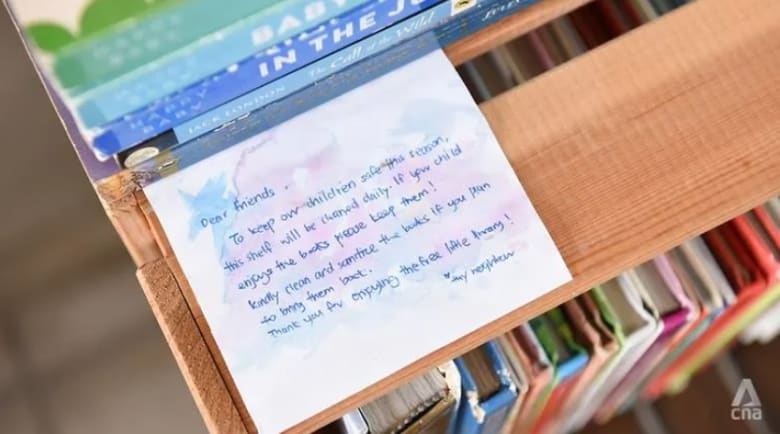 BABY
IN THE JU
BABY
JACK LONDON The Call of the Wild
Dear friends,
To keep our children safe this season,
this shelf will be cleaned daily. If your child
enjoys the books please keep them!
kindly clean and sanitise the books if you plan
to bring them back.
Thank you for enjoying the free little library!
cna